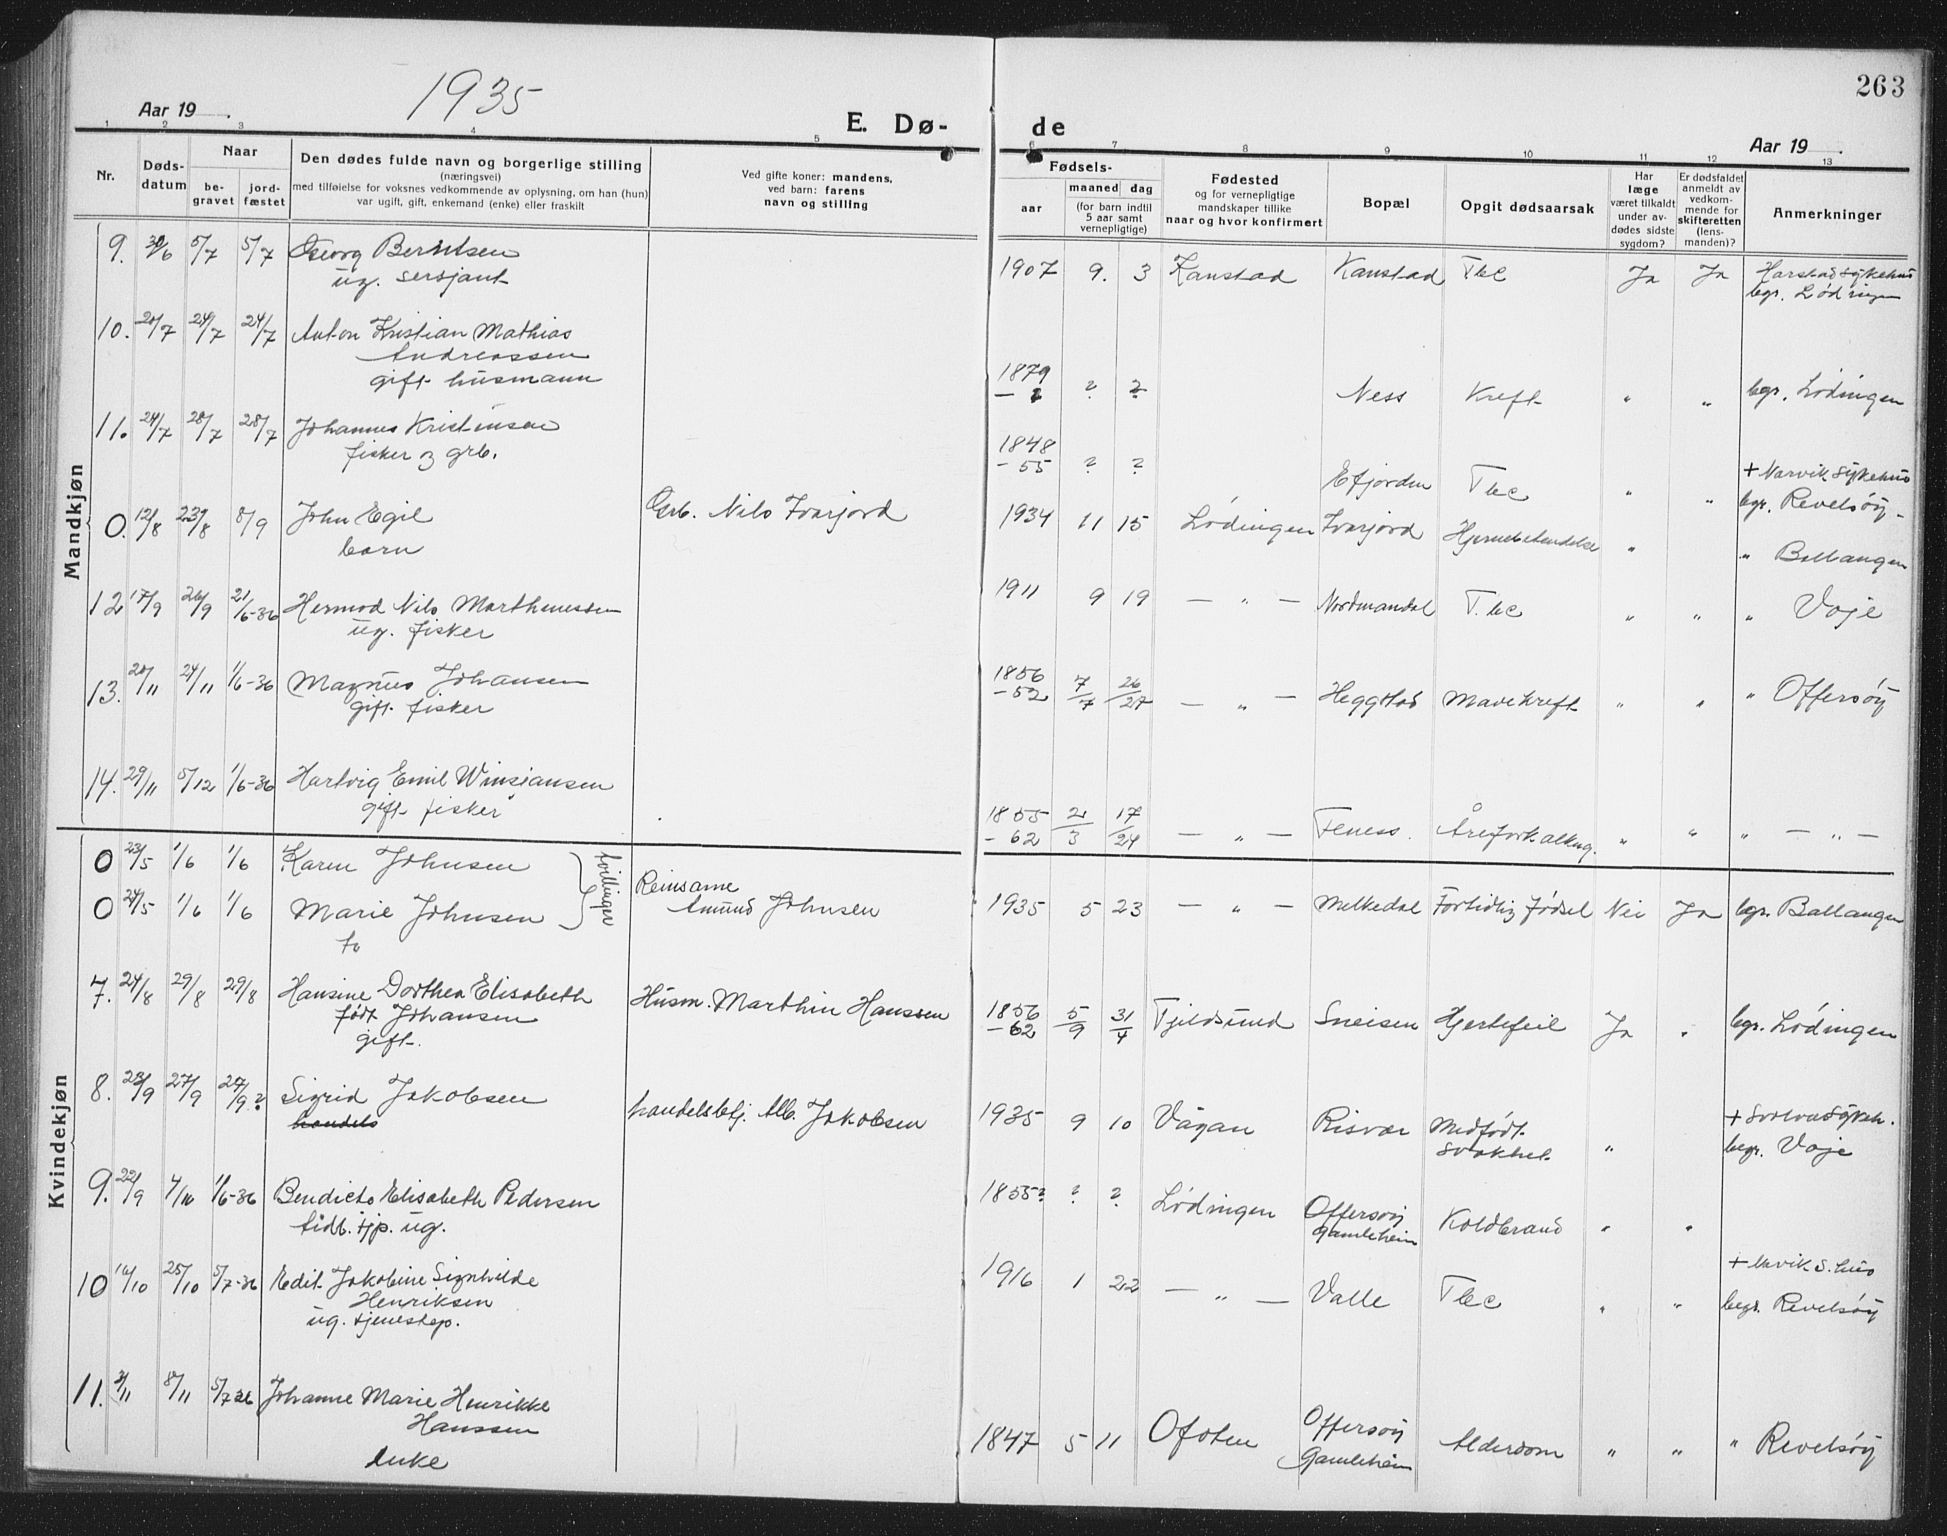 263
Aar 19
1935
E. Dø-
de
Aar 19
1 2 3 4 5 6 7 8 9 10 11 12 13
Nr.
Døds-
datum
Naar
be-
gravet
jord-
fæstet
Den dødes fulde navn og borgerlige stilling
(næringsvei)
med tilføielse for voksnes vedkommende av oplysning, om han (hun)
var ugift, gift, enkemand (enke) eller fraskilt
Ved gifte koner: mandens,
ved barn: farens
navn og stilling
Fødsels-
aar
maaned dag
(for barn indtil
5 aar samt
vernepligtige)
Fødested
og for vernepligtige
mandskaper tillike
naar og hvor konfirmert
Bopæl
Opgit dødsaarsak
Har
læge
været tilkaldt
under av-
dødes sidste
sygdom?
Er dødsfaldet
anmeldt av
vedkom-
mende for
skifteretten
(lens-
manden)?
Anmerkninger
Mandkjøn
9. 30/6 5/7 5/7 Georg Berntsen 1907 9. 3 Kanstad Kanstad Tbc Ja Ja Harstad sykehus
ug. sersjant bgr. Lødingen
10. 20/7 24/7 24/7 Anton Kristian Mathias
Andreassen
gift husmann 1879 - ? ? ? Ness Kreft " " bgr. Lødingen
11. 24/7 28/7 28/7 Johannes Kristensen 1848
fisker og grb. -55 ? ? Efjorden Tbc " " + Narvik sykehus
bgr. Revelsøy -
0. 12/8 23/8 8/9 John Egil Grb. Nils Ivarjord 1934 11 15 Lødingen Ivarjord Hjernebetendelse " " Ballangen
barn
12 17/9 26/9 21/6-36 Hermod Nils Marthinussen 1911 9 19 - " - Nordmandal Tbc " " " Voje
ug. fisker
13. 20/11 24/11 1/6-36 Magnus Johansen 1856
-52 7/7 26/27 - " - Heggstad Mavekreft " " " Offersøy
gift fisker
14. 29/11 5/12 1/6-36 Hartvig Emil Winsjansen
gift fisker 1855
-62 2/3 17/24 - " - Feness. Åreforkalkng. " " " - " -
Kvindekjøn
0 23/5 1/6 1/6 Karen Johnsen
tvillinger
Reinsame
0 24/5 1/6 1/6 Marie Johnsen Amund Johnsen 1935 5 23 - " - Melkedal Fortidlig fødsel Nei Ja bgr. Ballangen
to
7. 24/8 29/8 29/8 Hansine Dorthea Elisabeth Husm. Marthin Hanssen 1856
-62 5/9 31/4 Tjeldsund Sneisen Hjertefeil Ja " bgr. Lødingen
født Johansen
gift.
8. 23/9 27/9 27/9? Sigrid Jakobsen handelsbtj. Alb. Jakobsen 1935 9 10 Vågan Risvær Medfødt
svakhet " + Svolvær sykeh.
bgr. Voje
handels
9. 22/9 4/10 1/6-36 Bendicte Elisabeth Pedersen 1855? ? ? Lødingen Offersøy
gamlehem Koldbrand " "
tidl. tjp. ug.
10 14/10 25/10 5/7-36 Edit Jakobine Signhilde 1916 1 22 - " - Valle Tbc " " + Narvik s.hus
begr. Revelsøy
Henriksen
ug. tjenestep.
11. 3/11 8/11 5/7 36 Johanne Marie Henrikke
Hanssen
enke 1847 5 11 Ofoten Offersøy
Gamlehem Alderdom " " " Revelsøy